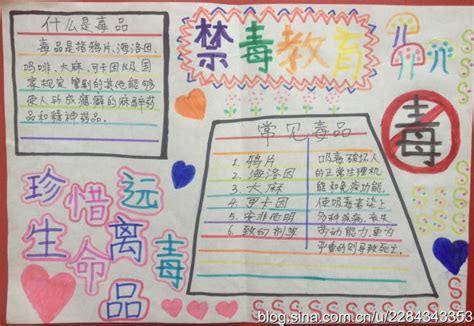 什么是毒品
毒品是指鸦片,海洛因,
吗啡、大麻、可卡因以及国
家规定管制的其他能够
使人形成瘾癖的麻醉药
品和精神药品。
禁毒教育
毒
常见毒品
1. 鸦片
2. 海洛因
3. 大麻
4. 可卡因
5. 安非他明
6. 致幻剂等
吸毒破坏人
的正常生理机
能和免疫功能,
使吸毒者染上
多种疾病,丧失
劳动能力,更为
严重的则导致死亡。
珍惜生命
远离毒品
blog.sina.com.cn/u/2284343353